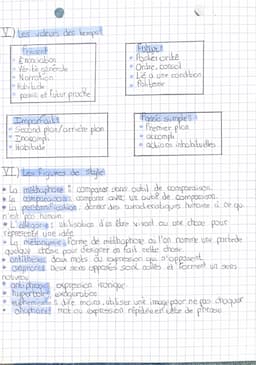 V) Les valeurs des temps
Présent
• Enonciation
• Vérité générale
• Narration
• Habitude
• passé et futur proche
Futur
• Postériorité
• Ordre, conseil
• Lié a une condition
• Politesse
Imparfait
• Second plan/arrière plan
• Inaccompli
• Habitude
Passé simple
• Premier plan
• accompli
• actions inhabituelles
VI) Les figures de style
• La métaphore : comparer sans outil de comparaison.
• La comparaison : comparer avec un outil de comparaison.
• La personnification : donner des caractéristiques humaine a ce qui
n'est pas humain.
• L'allégorie : utilisation d'es être vivant ou une chose pour
représenté une idée
• La métonymie : forme de métaphore ou l'on nomme une partie de
quelque chose pour désigner en fait cette chose.
• antithèse : deux mots ou expression qui s'opposent.
• oxymore : Deux sens opposés sont collés et forment un sens
nouveau
• antiphrase : expression ironique.
• hyperbole : exagération.
• euphémisme : dire moins, utiliser une image pour ne pas choquer
• anaphore : mot ou expression répétée en début de phrase